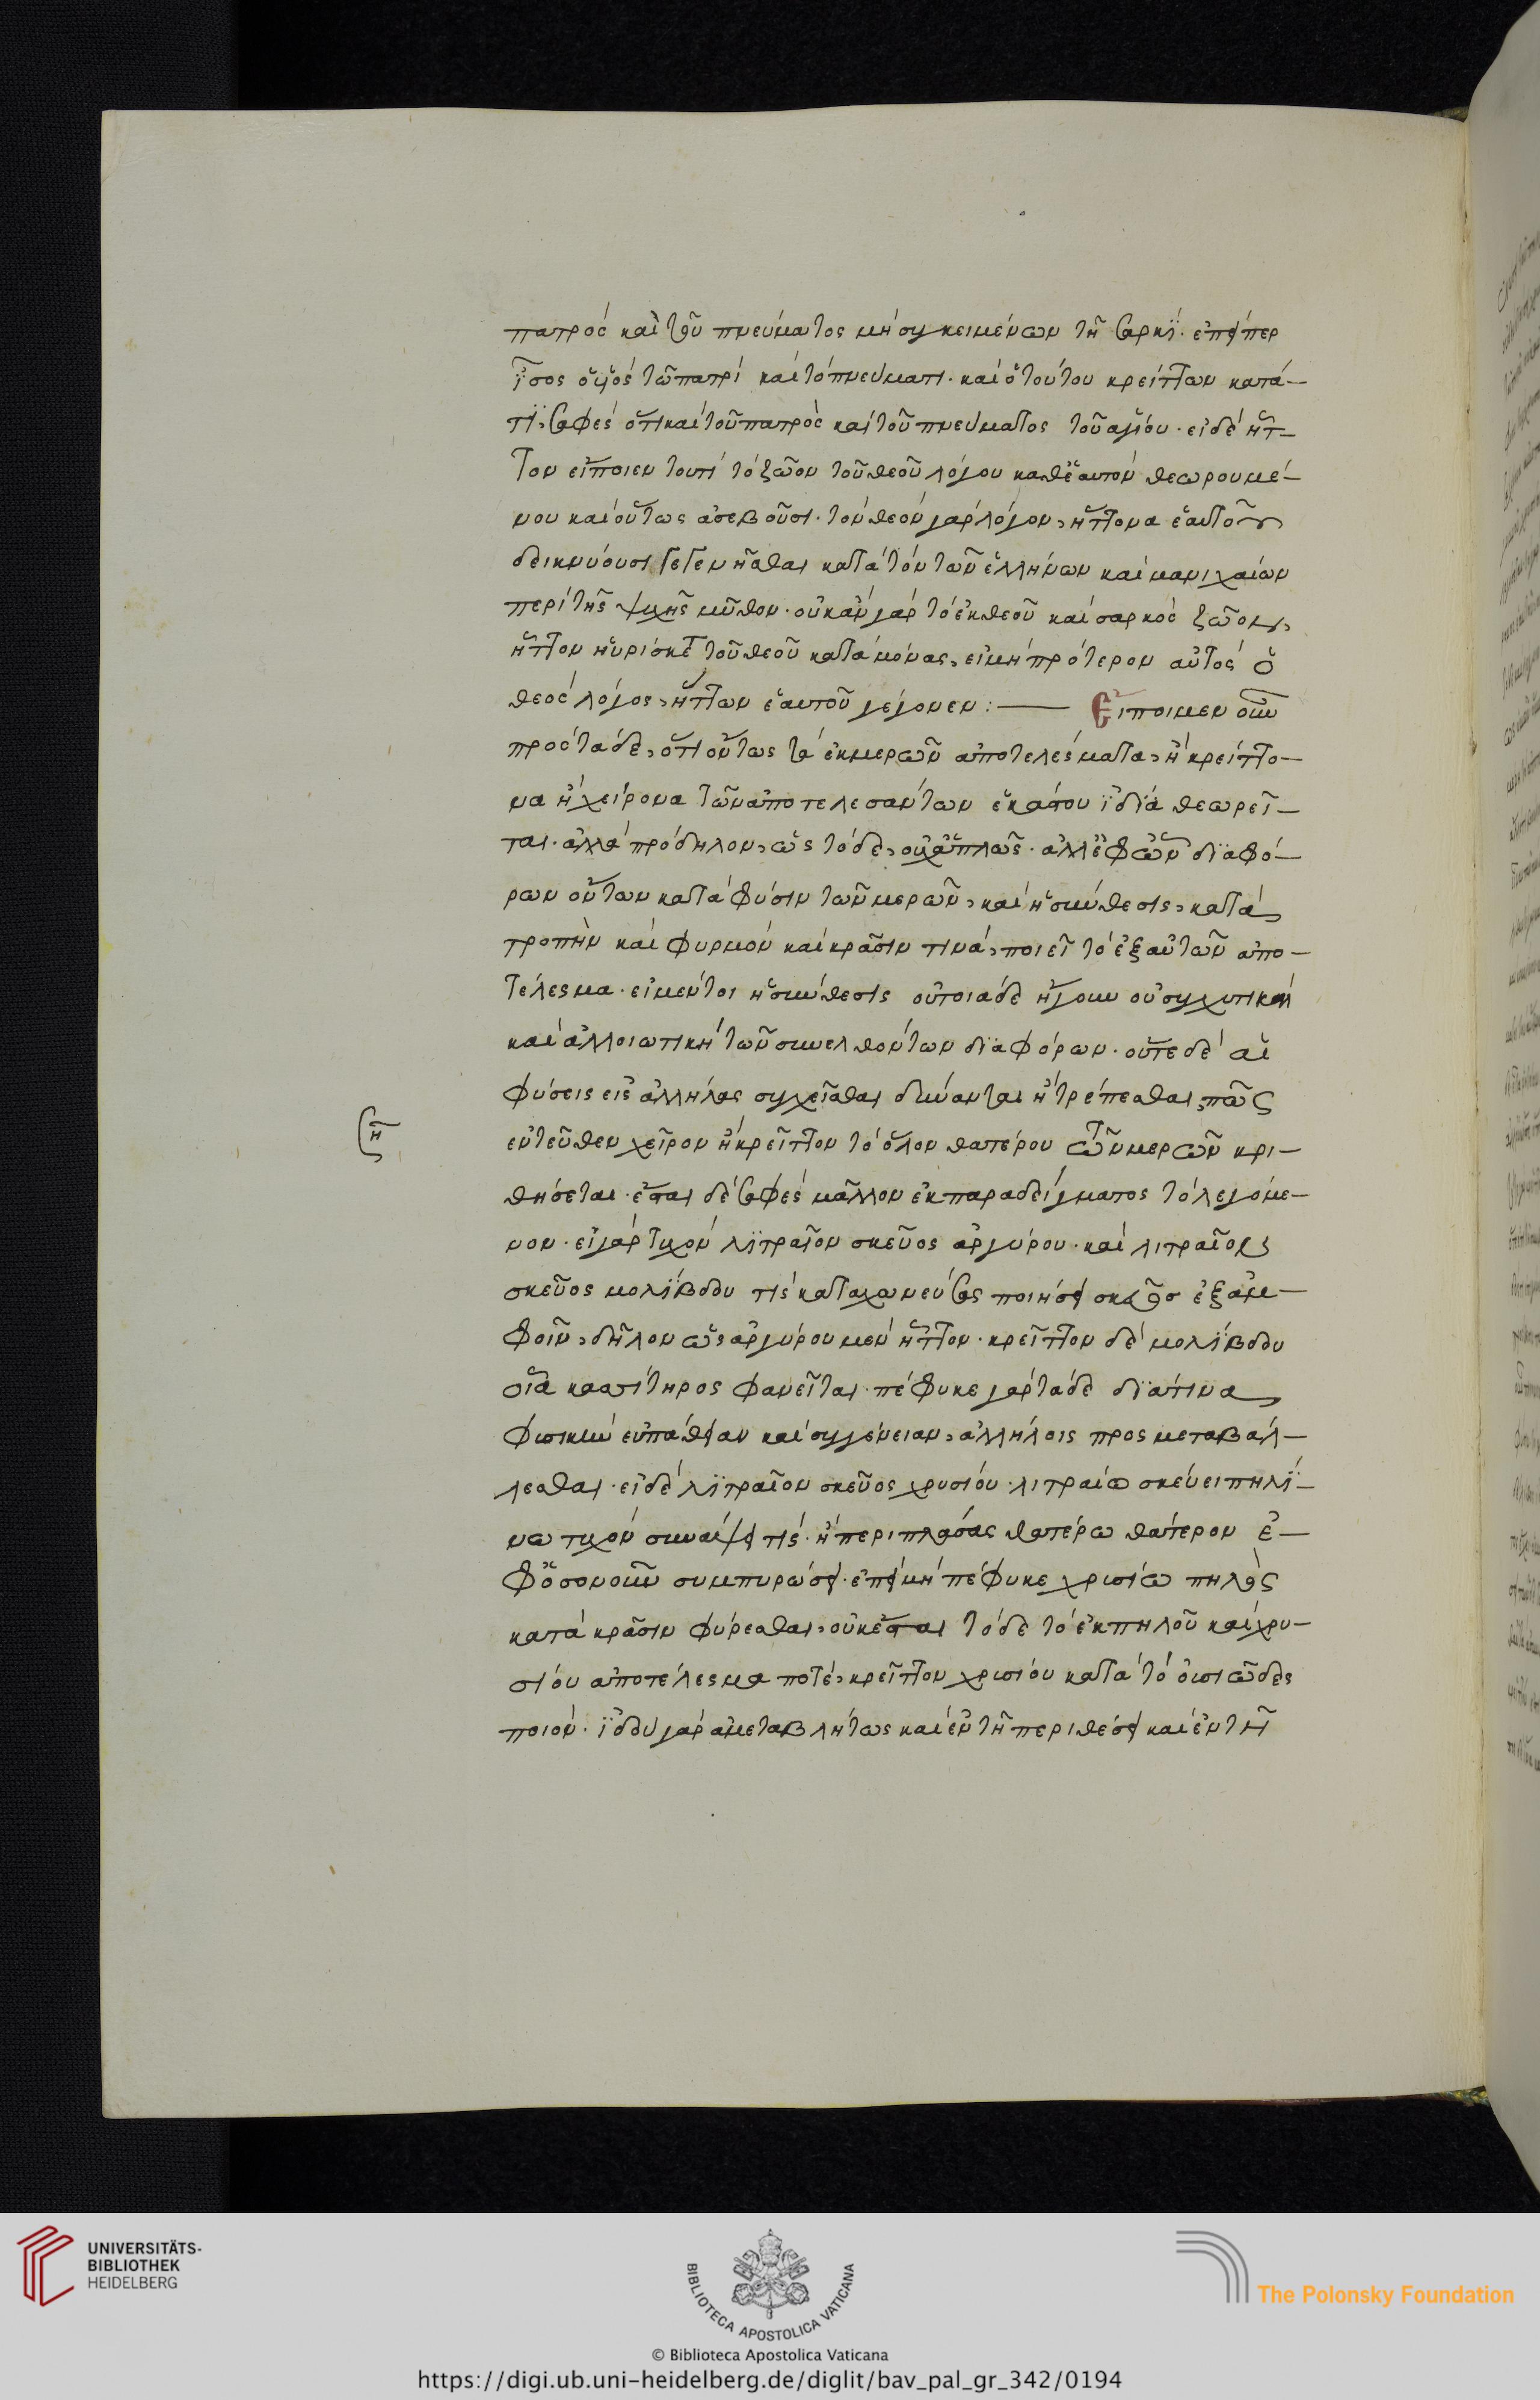 πατρὸς καὶ τοῦ πνεύματος μὴ συγκειμένων τῇ σαρκί· ἐπείπερ
ἴσος ὁ υἱὸς τῷ πατρὶ καὶ τὸ πνεύματι· καὶ ὁ τούτου κρείττων κατά-
τι, σαφὲς ὅτι καὶ τοῦ πατρὸς καὶ τοῦ πνεύματος τοῦ ἁγίου· εἰ δὲ ἧτ-
τον εἴποιεν τουτὶ τὸ ζῶον τοῦ θεοῦ λόγου καθ' ἑαυτὸν θεωρουμέ-
νου καὶ οὕτως ἀσεβοῦσι· τὸν θεὸν γὰρ λόγον, ἥττονα ἑαυτοῦ
δεικνύουσι γεγενῆσθαι κατὰ τὸν τῶν ἑλλήνων καὶ μανιχαίων
περὶ τῆς ψυχῆς μῦθον· οὐκ ἂν γὰρ τὸ ἐκ θεοῦ καὶ σαρκὸς ζῶον,
ἧττον ηὑρίσκετο τοῦ θεοῦ κατὰ μόνας, εἰ μὴ πρότερον αὐτὸς ὁ
θεὸς λόγος, ἥττων ἑαυτοῦ γέγονεν :— Εἴποιμεν οὖν
πρὸς τάδε, ὅτι οὕτως τὰ ἐκ μερῶν ἀποτελέσματα, ἢ κρείττο-
να ἢ χείρονα τῶν ἀποτελεσάντων ἑκάστου ἰδίᾳ θεωρεῖ-
ται· ἀλλὰ πρόδηλον, ὡς τόδε, οὐχ ἁπλῶς· ἀλλ' ἐφ' ὧν διαφό-
ρων ὄντων κατὰ φύσιν τῶν μερῶν, καὶ ἡ σύνθεσις, κατὰ
τροπὴν καὶ φυρμὸν καὶ κρᾶσιν τινὰ, ποιεῖ τὸ ἐξ αὐτῶν ἀπο-
τέλεσμα· εἰ μέντοι ἡ σύνθεσις οὐ τοιάδε ἤγουν οὐ συγχυτικὴ
καὶ ἀλλοιωτικὴ τῶν συνελθόντων διαφόρων· οὔτε δὲ αἱ
φύσεις εἰς ἀλλήλας συγχεῖσθαι δύνανται ἢ τρέπεσθαι, πῶς
ἐντεῦθεν χεῖρον ἢ κρεῖττον τὸ ὅλον θατέρου τῶν μερῶν κρι-
θήσεται· ἔσται δὲ σαφὲς μᾶλλον ἐκ παραδείγματος τὸ λεγόμε-
νον· εἰ γὰρ τυχὸν λιτραῖον σκεῦος ἀργύρου· καὶ λιτραῖον
σκεῦος μολίβδου τὶς καταχωνεύσας ποιήσει σκεῦος ἐξ ἀμ-
φοῖν, δῆλον ὡς ἀργύρου μὲν ἧττον· κρεῖττον δὲ μολίβδου
οἷα κασσίτηρος φανεῖται· πέφυκε γὰρ τάδε διά τινα
φυσικὴν εὐπάθειαν καὶ συγγένειαν, ἀλλήλοις προσμεταβάλ-
λεσθαι· εἰ δὲ λιτραῖον σκεῦος χρυσίου· λιτραίω σκεύει πηλί-
νω τυχὸν συνάψει τίς· ἢ περιπλάσας θατέρω θάτερον ἐ-
φ' ὅσον οὖν συμπυρώσει· ἐπεὶ μὴ πέφυκε χρυσίω πηλὸς
κατὰ κρᾶσιν φύρεσθαι, οὐκ ἔσται τόδε τὸ ἐκ πηλοῦ καὶ χρυ-
σίου ἀποτέλεσμα ποτὲ, κρεῖττον χρυσίου κατὰ τὸ οὐσιῶδες
ποιόν· ἰδοὺ γὰρ ἀμεταβλήτως καὶ ἐν τῇ περιθέσει καὶ ἐν τῇ
UNIVERSITÄTS-
BIBLIOTHEK
HEIDELBERG
BIBLIOTECA APOSTOLICA VATICANA
The Polonsky Foundation
© Biblioteca Apostolica Vaticana
https://digi.ub.uni-heidelberg.de/diglit/bav_pal_gr_342/0194